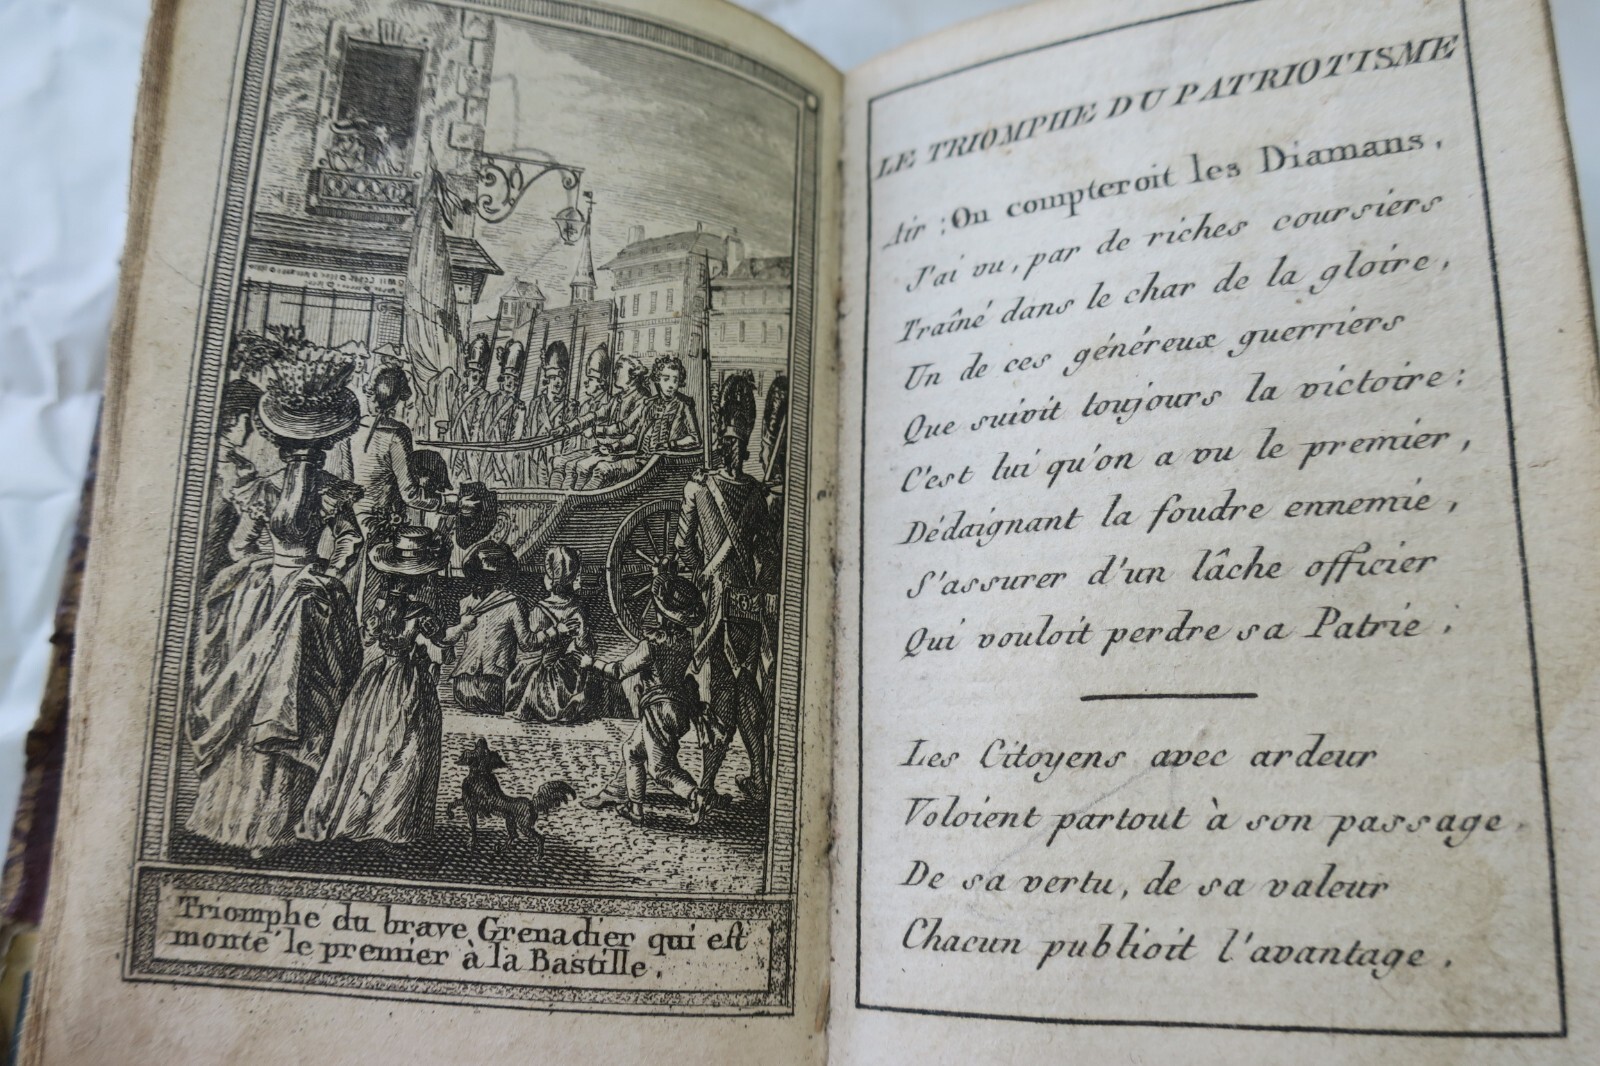 Triomphe du brave Grenadier qui est
monté le premier à la Bastille.
LE TRIOMPHE DU PATRIOTISME
Air : On compteroit les Diamans,
J'ai vu, par de riches coursiers
Traîné dans le char de la gloire,
Un de ces généreux guerriers
Que suivit toujours la victoire;
C'est lui qu'on a vu le premier,
Dédaignant la foudre ennemie,
S'assurer d'un lâche officier
Qui vouloit perdre sa Patrie;
Les Citoyens avec ardeur
Voloient partout à son passage
De sa vertu, de sa valeur
Chacun publioit l'avantage.